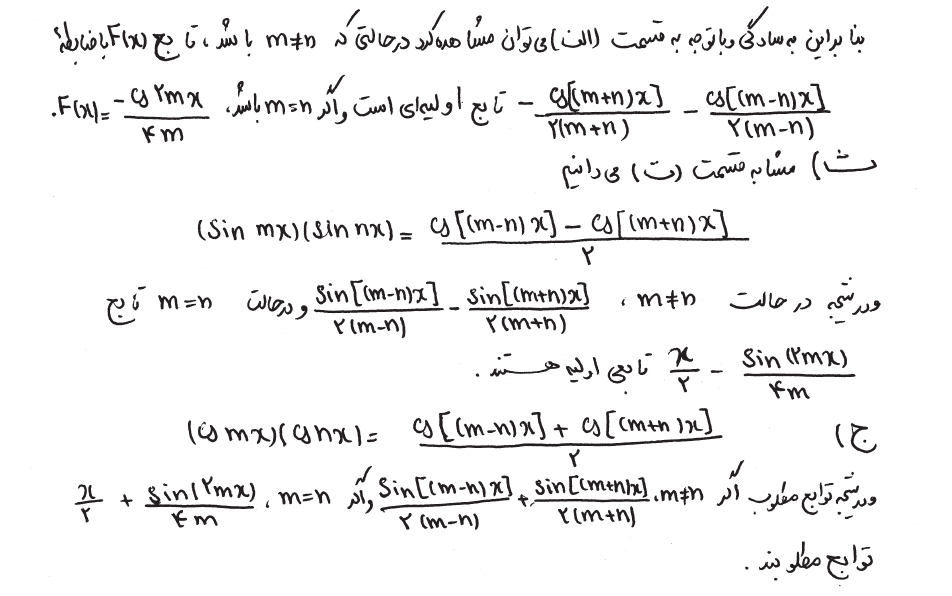 بنا براین به سادگی و با توجه به قسمت (الف) می توان مشاهده کرد در حالتی که m≠n باشد، تابع F(x) با ضابطهٔ
− cos[(m+n)x]/۲(m+n) − cos[(m−n)x]/۲(m−n) تابع اولیه‌ای است و اگر m=n باشد، F(x)= −cos ۲mx/۴m.
ث) مشابه قسمت (ت) می دانیم
(sin mx)(sin nx)= cos[(m-n)x] − cos[(m+n)x]/۲
و در نتیجه در حالت m≠n، sin[(m-n)x]/۲(m-n) − sin[(m+n)x]/۲(m+n) و در حالت m=n تابع
x/۲ − sin(۲mx)/۴m تابعی اولیه هستند.
ج) (cos mx)(cos nx)= cos[(m-n)x] + cos[(m+n)x]/۲
و در نتیجه توابع مطلوب اگر m≠n، sin[(m+n)x]/۲(m+n) + sin[(m-n)x]/۲(m-n) و اگر m=n، sin(۲mx)/۴m + x/۲
توابع مطلوبند.